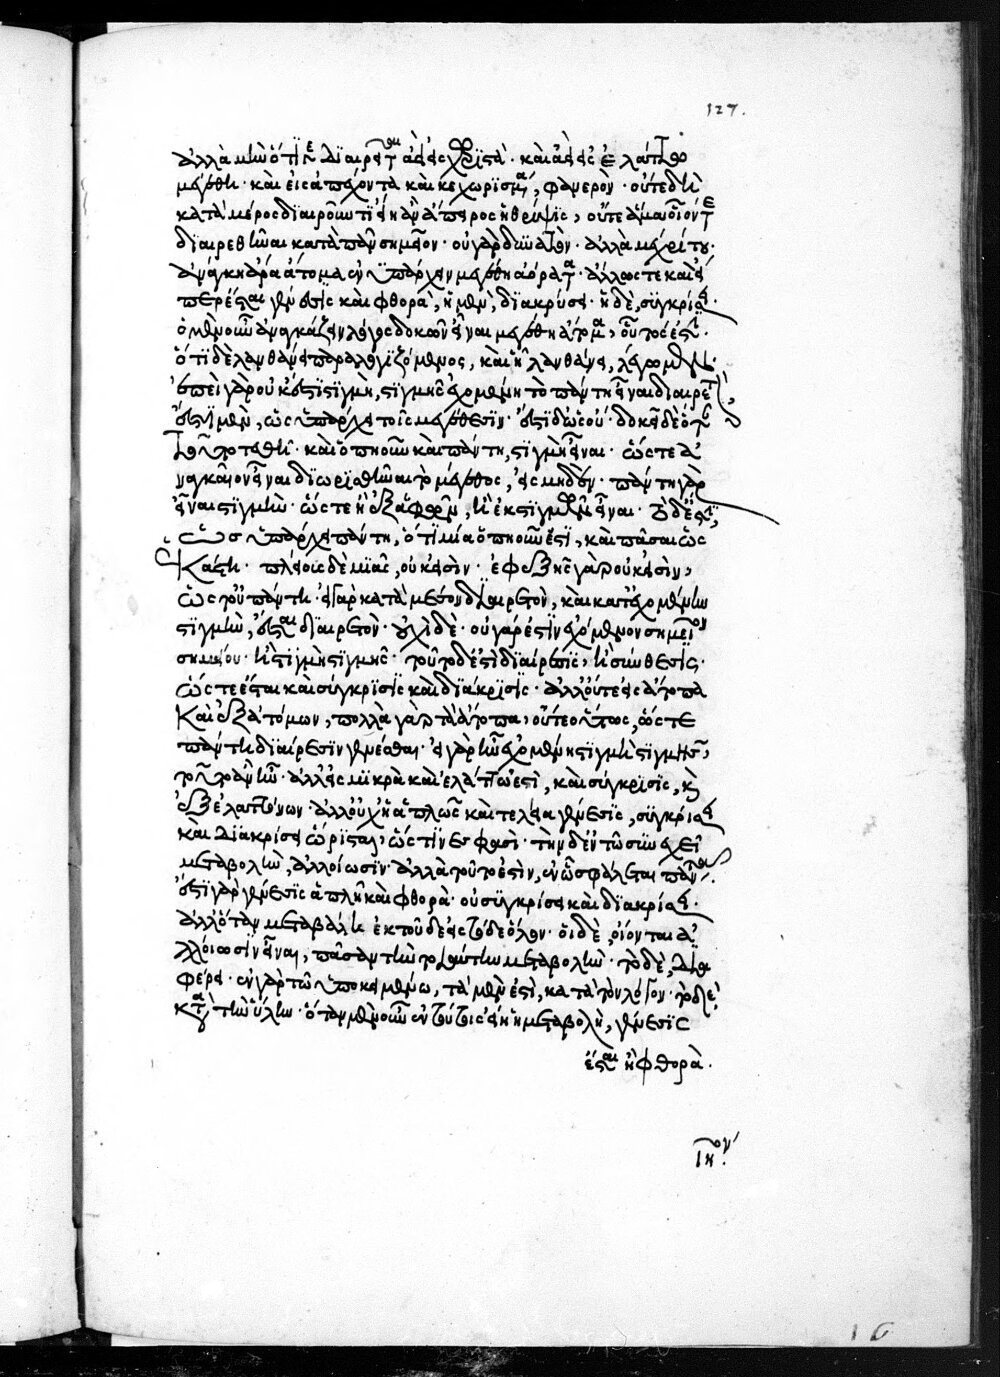 ἀλλὰ μὴν ὅτι γε διαιρεῖται ἀεὶ εἰς χωριστὰ· καὶ ἀεὶ εἰς ἐλάττω
μεγέθη· καὶ εἰς ἀπέχοντα καὶ κεχωρισμένα, φανερὸν· οὔτε δὴ
κατὰ μέρος διαιροῦντι εἴη ἂν ἄπειρος ἡ θρύψις, οὔτε ἅμα οἷόν τε
διαιρεθῆναι κατὰ πᾶν σημεῖον· οὐ γὰρ δυνατὸν· ἀλλὰ μέχρι του·
ἀνάγκη ἄρα ἄτομα ἐνυπάρχειν μεγέθη ἀόρατα· ἄλλως τε καὶ εἴ
περ ἔσται γένεσις καὶ φθορὰ, ἡ μὲν, διακρίσει· ἡ δὲ, συγκρίσει·
ὁ μὲν οὖν ἀναγκάζειν λόγος δοκῶν εἶναι μεγέθη ἄτομα, οὗτός ἐστι·
ὅτι δὲ λανθάνει παραλογιζόμενος, καὶ ᾗ λανθάνει, λέγομεν·
ἐπεὶ γὰρ οὐκ ἔστι στιγμὴ, στιγμῆς ἐχομένη τὸ πάντη εἶναι διαιρετὸν,
ἔστι μὲν, ὡς ὑπάρχει τοῖς μεγέθεσιν· ἔστι δὲ ὡς οὔ· δοκεῖ δὲ ὅταν
τοῦτο τεθῆ· καὶ ὁπηοῦν καὶ πάντη, στιγμὴ εἶναι· ὥστε ἀ
ναγκαῖον εἶναι διωρίσθαι τὸ μέγεθος, εἰς μηδὲν· πάντη γὰρ
εἶναι στιγμὴν· ὥστε ἢ ἐξ ἁφῶν, ἢ ἐκ στιγμῶν εἶναι· τὸ δέ ἐστι,
ὡς ὑπάρχει πάντη, ὅτι μία ὁπηοῦν ἐστι, καὶ πᾶσαι ὡς
ἑκάστη· πλείους δὲ μιᾶς, οὐκ εἰσὶν· ἐφεξῆς γὰρ οὐκ εἰσὶν,
ὡς τοῦ πάντη· εἰ γὰρ κατὰ μέσον διαιρετὸν, καὶ κατ' ἐχομένην
στιγμὴν, ἔσται διαιρετὸν· οὐχὶ δὲ· οὐ γάρ ἐστιν ἐχόμενον σημεῖον
σημείου· ἢ στιγμὴ στιγμῆς· τοῦτο δέ ἐστι διαίρεσις, ἢ σύνθεσις·
ὥστε ἔσται καὶ σύγκρισις καὶ διάκρισις· ἀλλ' οὔτε εἰς ἄτομα
καὶ ἐξ ἀτόμων, πολλὰ γὰρ τὰ ἄτοπα, οὔτε οὕτως, ὥστε
πάντη διαίρεσιν γενέσθαι· εἰ γὰρ ἦν ἐχομένη στιγμὴ στιγμῆς,
τοῦτο ἂν ἦν· ἀλλ' εἰς μικρὰ καὶ ἐλάττω ἐστὶ, καὶ σύγκρισις, καὶ
ἐξ ἐλαττόνων· ἀλλ' οὐχ ἡ ἁπλῶς καὶ τελεία γένεσις, συγκρίσει
καὶ διακρίσει ὥρισται, ὥς τινές φασι· τὴν δ' ἐν τῷ συνεχεῖ
μεταβολὴν, ἀλλοίωσιν· ἀλλὰ τοῦτό ἐστιν, ἐν ᾧ σφάλλεται πάντα·
ἔστι γὰρ γένεσις ἁπλῆ καὶ φθορὰ· οὐ συγκρίσει καὶ διακρίσει·
ἀλλ' ὅταν μεταβάλλη ἐκ τοῦδε εἰς τόδε ὅλον· οἱ δὲ, οἴονται ἀ
λλοίωσιν εἶναι, πᾶσαν τὴν τοιαύτην μεταβολὴν· τὸ δὲ, δια
φέρει· ἐν γὰρ τῷ ὑποκειμένω, τὰ μέν ἐστι, κατὰ τὸν λόγον· τὸ δὲ,
κατὰ τὴν ὕλην· ὅταν μὲν οὖν ἐν τούτοις εἴη ἡ μεταβολὴ, γένεσις
ἔσται ἢ φθορὰ·